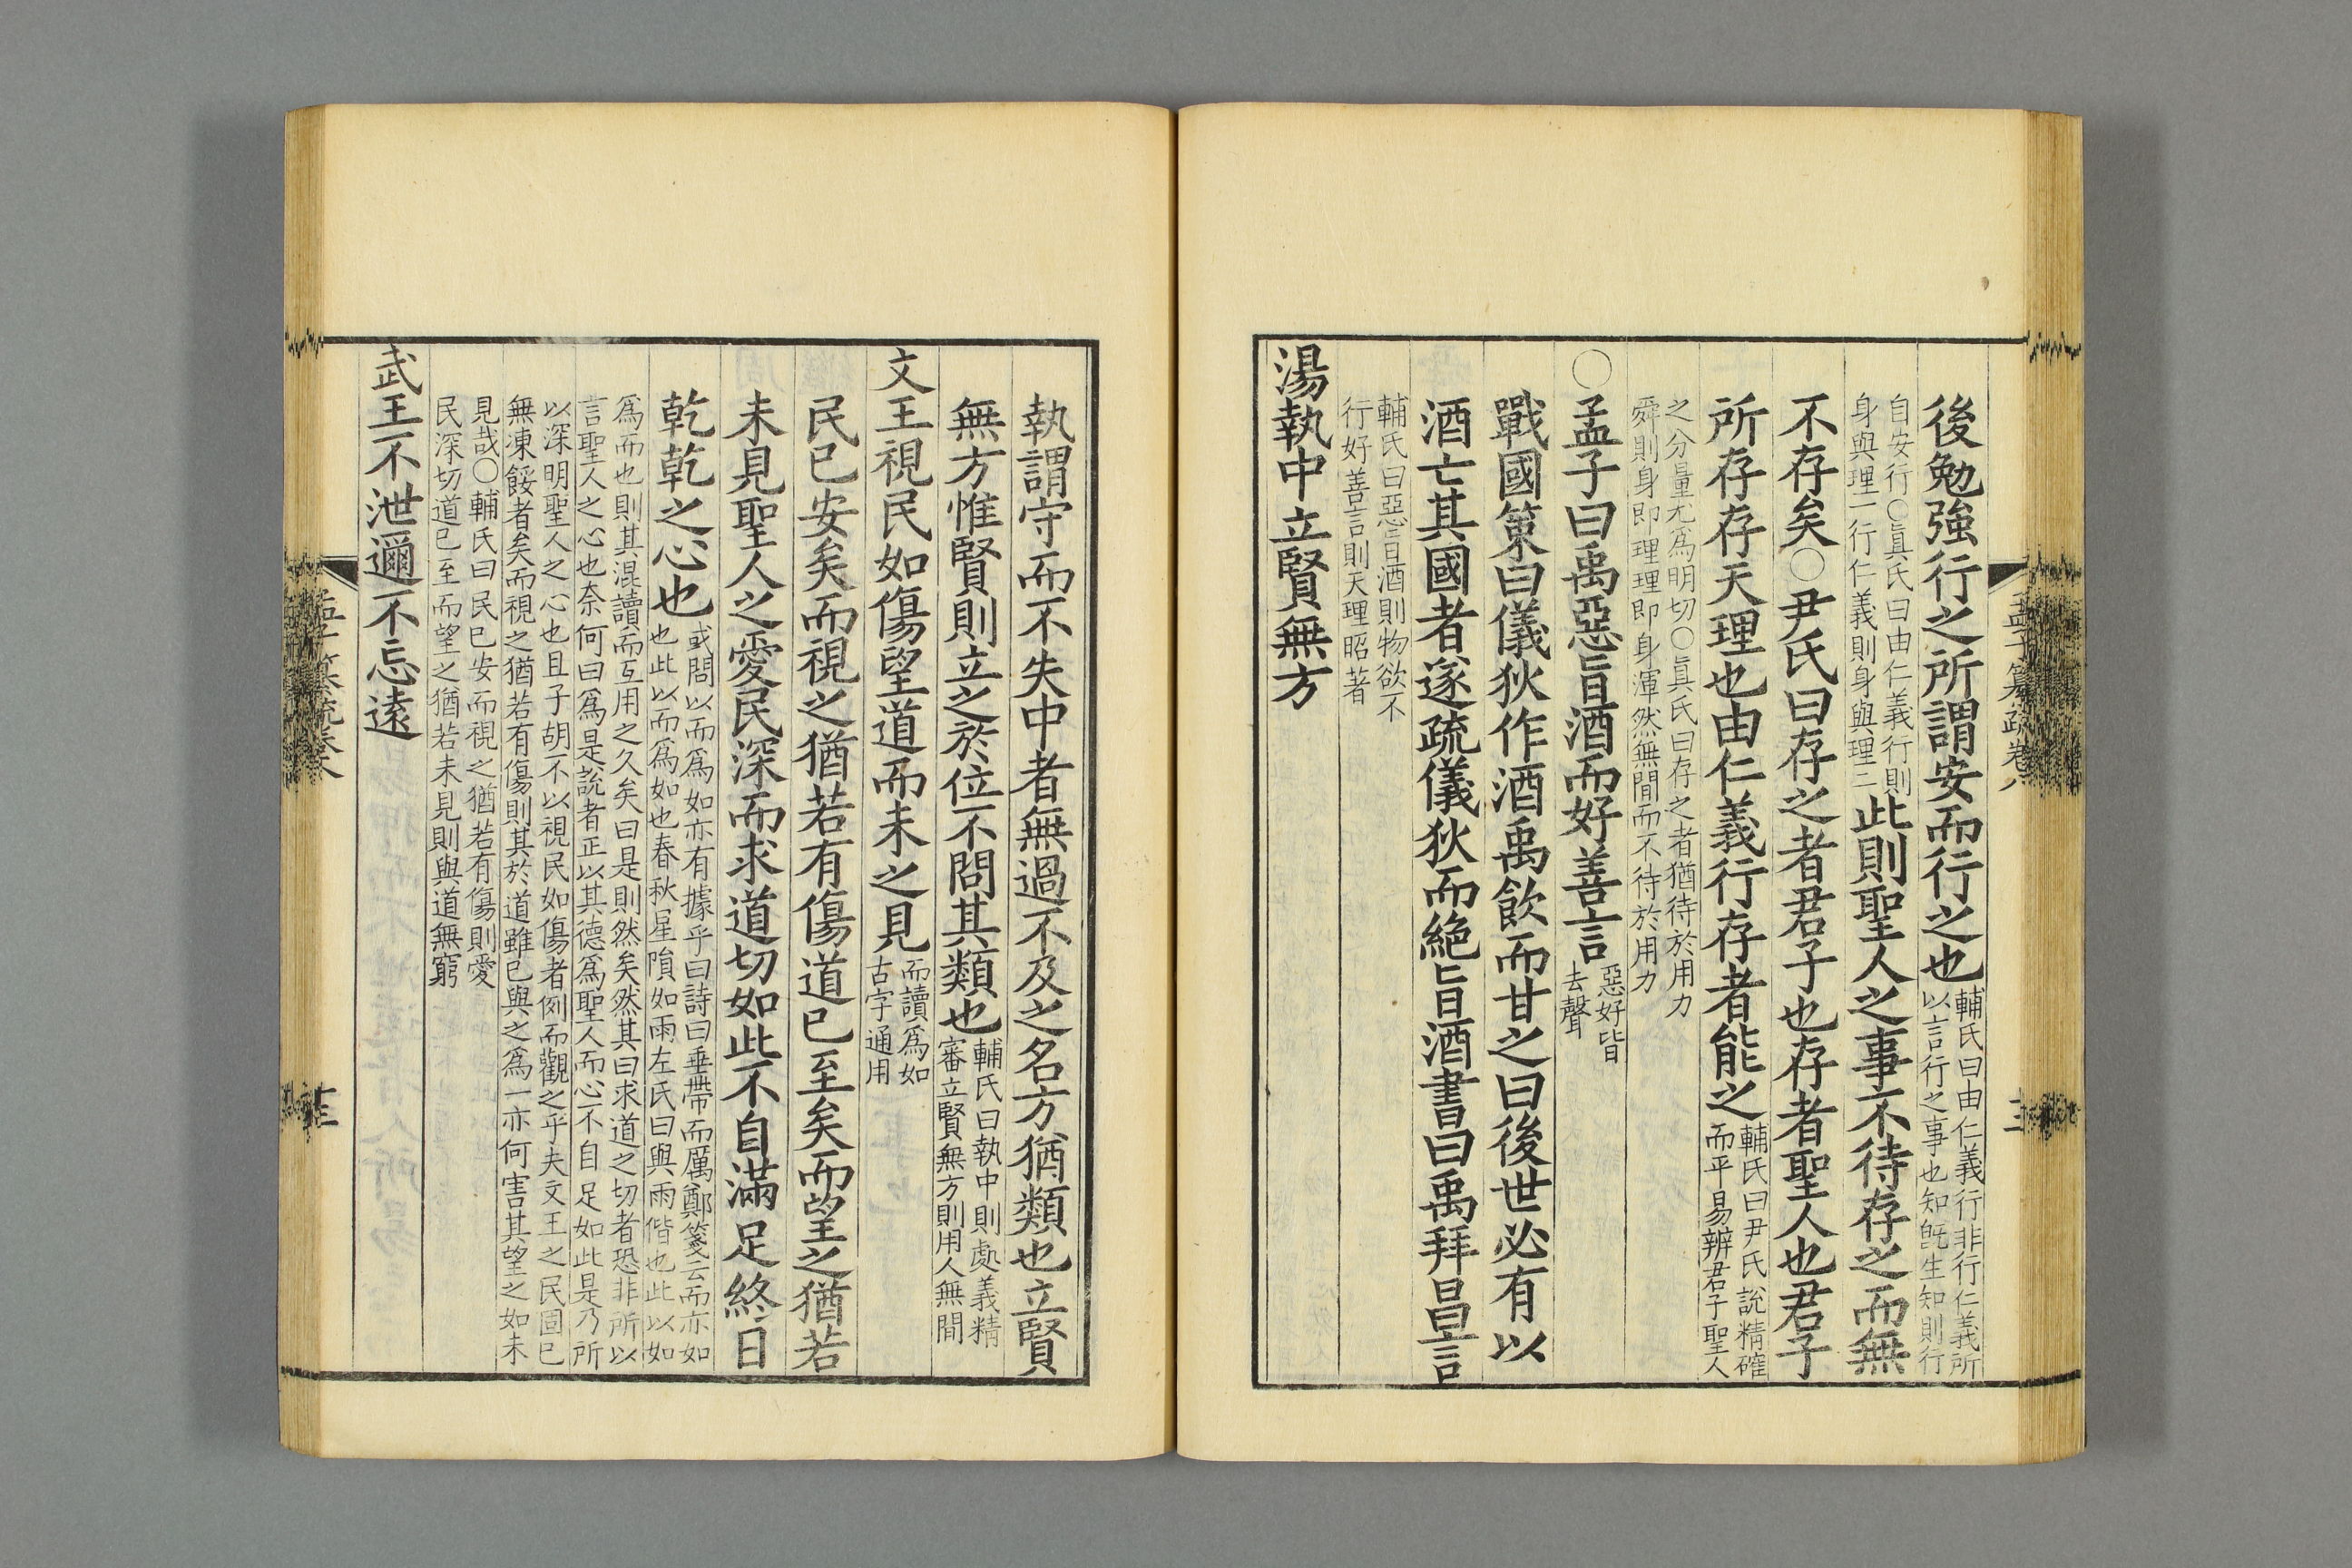 後勉強行之所謂安而行之也輔氏曰由仁義行非行仁義所
以言行之事也知旣生知則行
自安行○眞氏曰由仁義行則
身與理一行仁義則身與理二此則聖人之事不待存之而無
不存矣○尹氏曰存之者君子也存者聖人也君子
所存存天理也由仁義行存者能之輔氏曰尹氏說精確
而平易辨君子聖人
之分量尤爲明切○眞氏曰存之者猶待於用力
舜則身即理理即身渾然無間而不待於用力
○孟子曰禹惡旨酒而好善言惡好皆
去聲
戰國策曰儀狄作酒禹飮而甘之曰後世必有以
酒亡其國者遂疏儀狄而絶旨酒書曰禹拜昌言
輔氏曰惡旨酒則物欲不
行好善言則天理昭著
湯執中立賢無方
孟子纂疏卷八
執謂守而不失中者無過不及之名方猶類也立賢
無方惟賢則立之於位不問其類也輔氏曰執中則處義精
審立賢無方則用人無間
文王視民如傷望道而未之見而讀爲如
古字通用
民已安矣而視之猶若有傷道已至矣而望之猶若
未見聖人之愛民深而求道切如此不自滿足終日
乾乾之心也或問以而爲如亦有據乎曰詩曰垂帶而厲鄭箋云而亦如
也此以而爲如也春秋星隕如雨左氏曰與雨偕也此以如
爲而也則其混讀而互用之久矣曰是則然矣然其曰求道之切者恐非所以
言聖人之心也奈何曰爲是說者正以其德爲聖人而心不自足如此是乃所
以深明聖人之心也且子胡不以視民如傷者例而觀之乎夫文王之民固已
無凍餒者矣而視之猶若有傷則其於道雖已與之爲一亦何害其望之如未
見哉○輔氏曰民已安而視之猶若有傷則愛
民深切道已至而望之猶若未見則與道無窮
武王不泄邇不忘遠
孟子纂疏卷八
十三